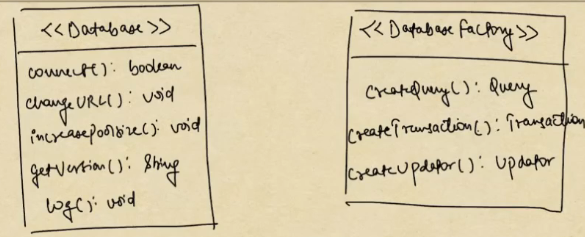 <<Database>>
connect(): boolean
changeURL(): void
increasepoolsize(): void
getVersion(): String
log(): void
<<Database Factory>>
createQuery(): Query
createTransaction(): Transaction
createUpdator(): Updator